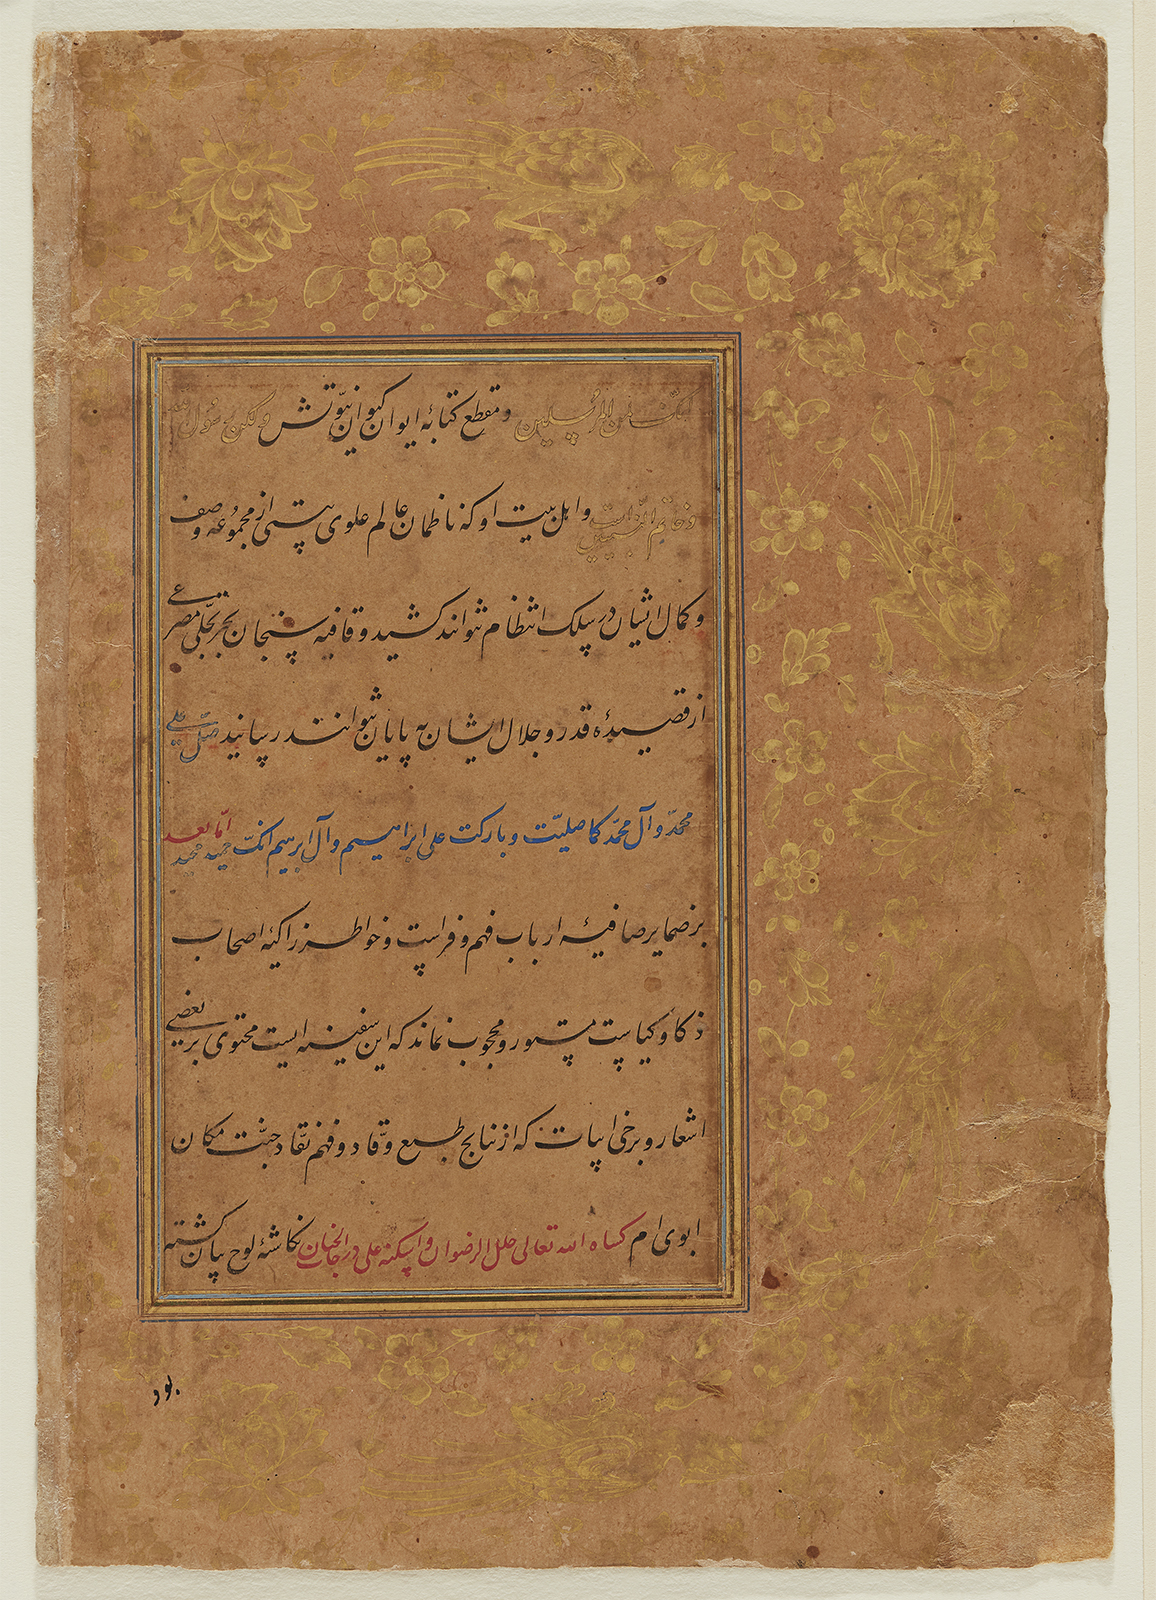 انک لمن المرسلین و مقطع کتابهٔ ایوان کیوان نبوّتش ولکن رسول الله
و خاتم النبیین است و اهل بیت او که ناظمان عالم علوی بیتی از مجموعهٔ وصف
و کمال ایشان در سلک انتظام نتوانند کشید و قافیه سنجان بحر تجلّی مصرعی
از قصیدهٔ قدر و جلال ایشان به پایان نتوانند رسانید صلّ علی
محمّد و آل محمّد کما صلیّت و بارکت علی ابراهیم و آل ابرهیم انکّ حمید مجید امّا بعد
بر ضمایر صافیهٔ ارباب فهم و فراست و خواطر زاکیهٔ اصحاب
ذکا و کیاست مستور و محجوب نماند که این سفینه ایست محتوی بر بعضی
اشعار و برخی ابیات که از نتایج طبع وقّاد و فهم نقّاد جنّت مکان
ابوی ام کساه الله تعالی حلل الرضوان و اسکنه علی درجات الجنان نکاشهٔ لوح بیان کشته
بود